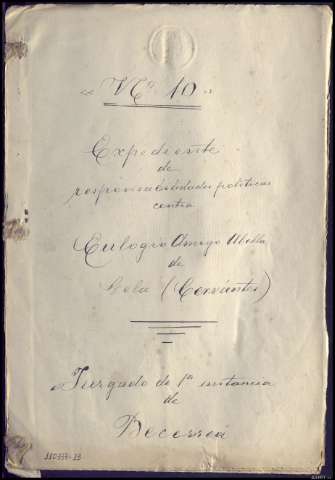 "Nº 10"
Expediente
de
responsabilidades políticas
contra
Eulogio Amigo Abella
de
(Cervantes)
Juzgado de 1ª instancia
de
Becerreá